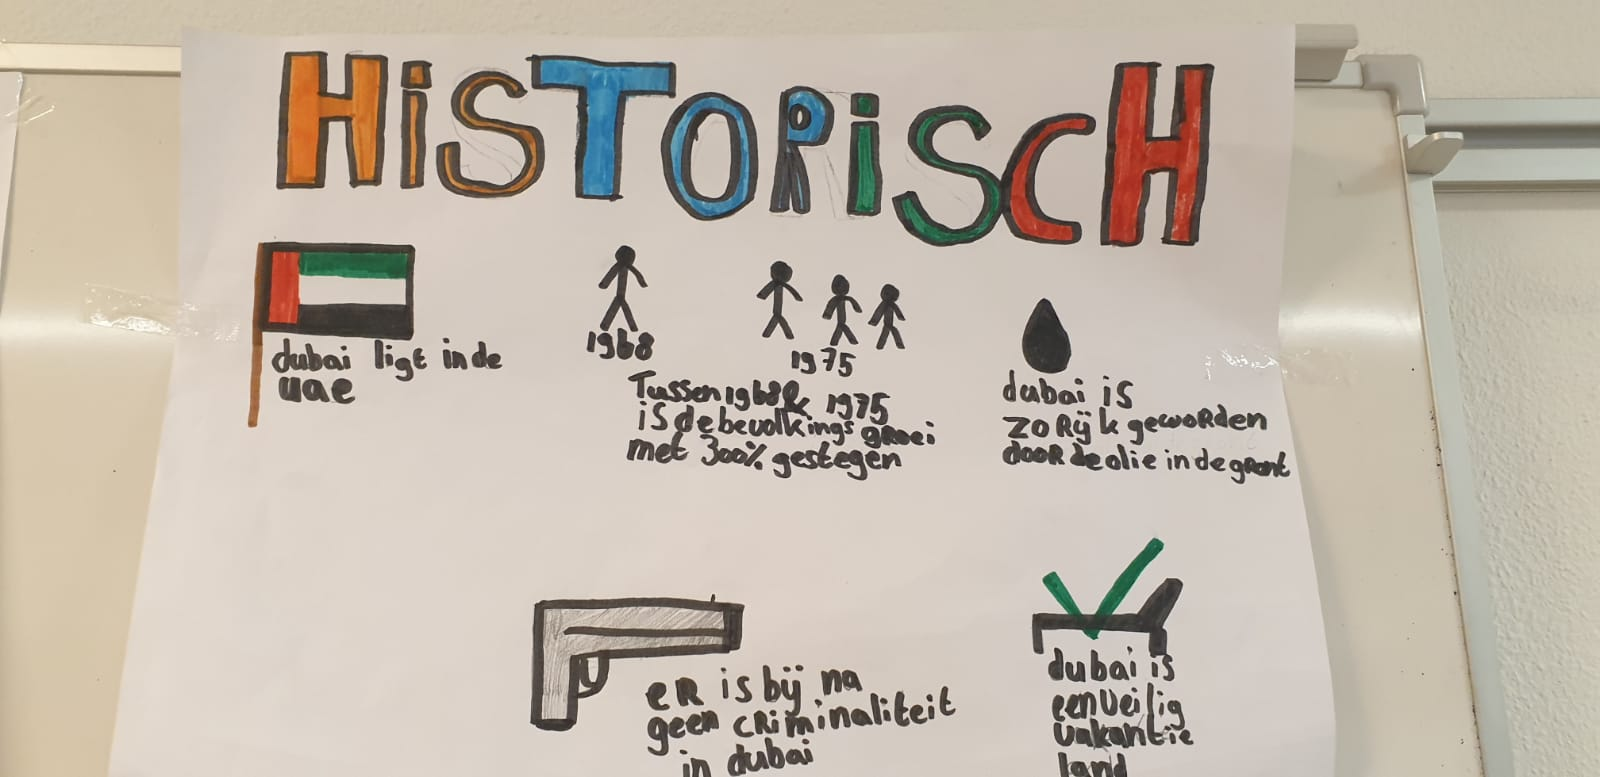 HiSTORiSCH
dubai ligt in de
uae
1968
1975
Tussen 1968 & 1975
is de bevolkings groei
met 300% gestegen
dubai is
zo Rijk gewoRden
dooR de olie in de gRont
eR is bij na
geen cRiminaliteit
in dubai
dubai is
een veilig
vakantie
land